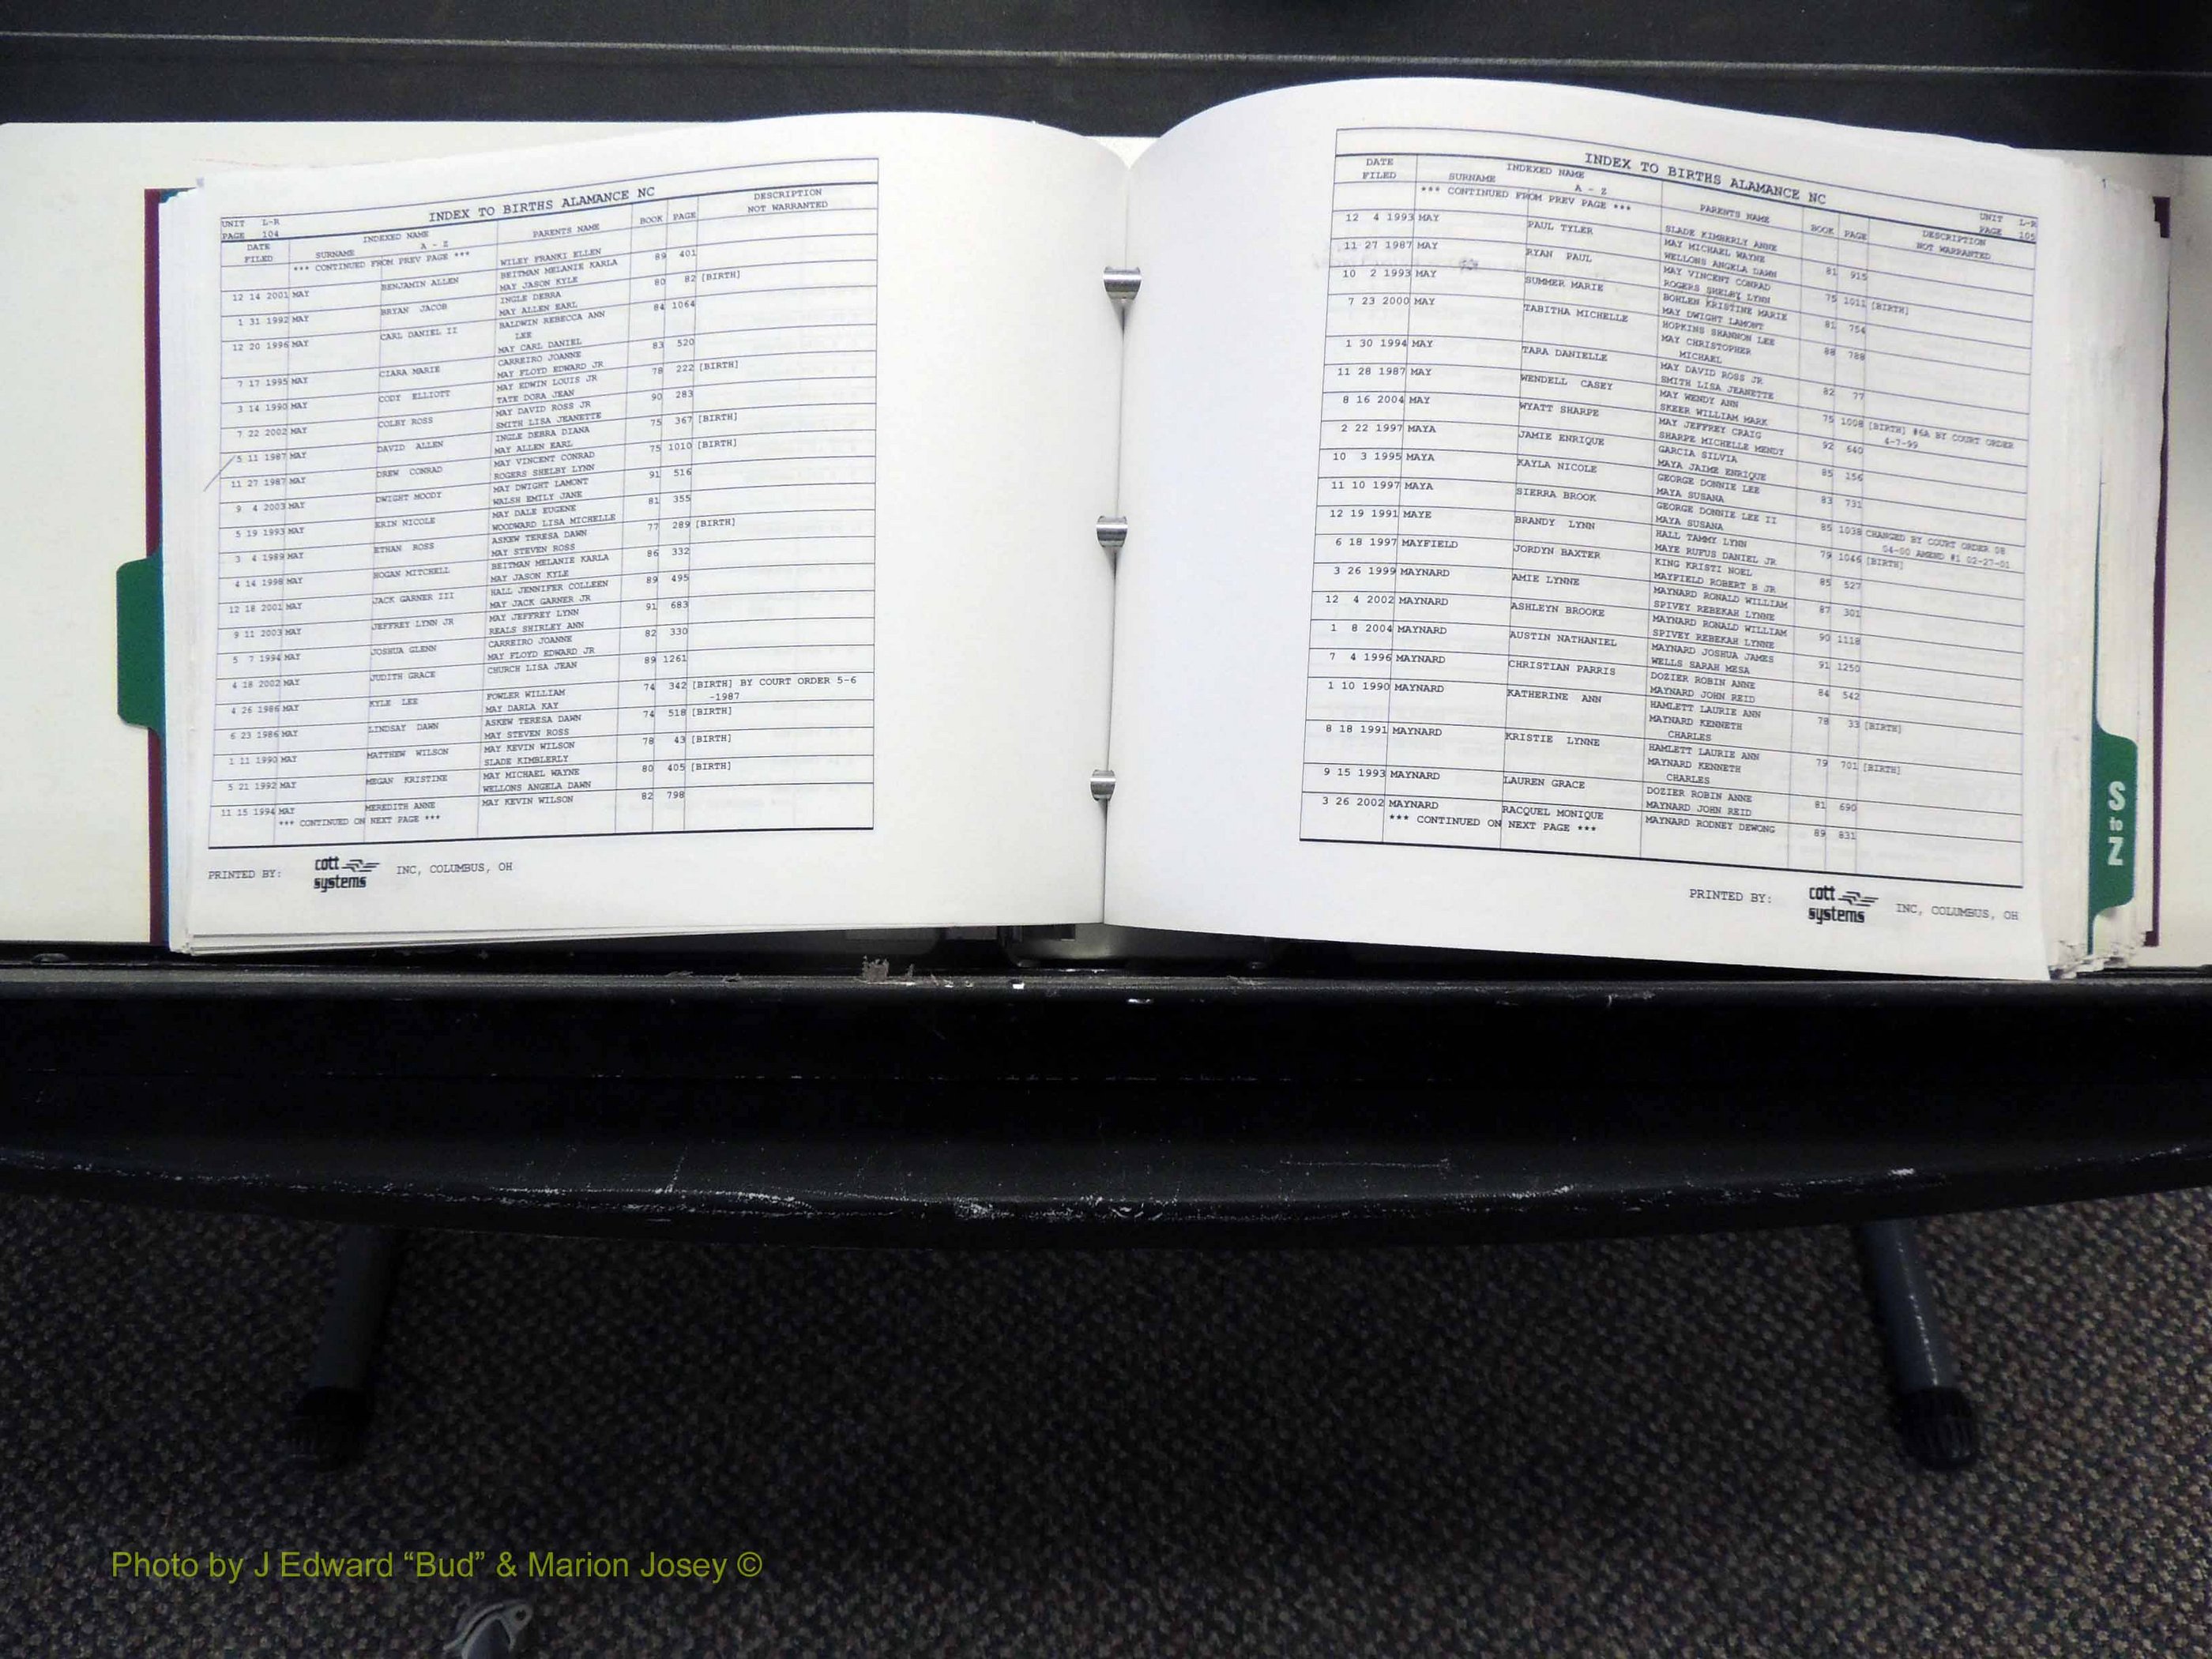 INDEX TO BIRTHS ALAMANCE NC
UNIT L-R
PAGE 104
DATE FILED SURNAME INDEXED NAME A - Z PARENTS NAME BOOK PAGE DESCRIPTION NOT WARRANTED
*** CONTINUED FROM PREV PAGE *** WILEY FRANKI ELLEN
12 14 2001 MAY BENJAMIN ALLEN BEITMAN MELANIE KARLA 89 401
MAY JASON KYLE
1 31 1992 MAY BRYAN JACOB INGLE DEBRA 80 82 [BIRTH]
MAY ALLEN EARL
12 20 1996 MAY CARL DANIEL II BALDWIN REBECCA ANN 84 1064
LEE
MAY CARL DANIEL
7 17 1995 MAY CIARA MARIE CARREIRO JOANNE 83 520
MAY FLOYD EDWARD JR
3 14 1990 MAY CODY ELLIOTT MAY EDWIN LOUIS JR 78 222 [BIRTH]
TATE DORA JEAN
7 22 2002 MAY COLBY ROSS MAY DAVID ROSS JR 90 283
SMITH LISA JEANETTE
5 11 1987 MAY DAVID ALLEN INGLE DEBRA DIANA 75 367 [BIRTH]
MAY ALLEN EARL
11 27 1987 MAY DREW CONRAD MAY VINCENT CONRAD 75 1010 [BIRTH]
ROGERS SHELBY LYNN
9 4 2003 MAY DWIGHT MOODY MAY DWIGHT LAMONT 91 516
WALSH EMILY JANE
5 19 1993 MAY ERIN NICOLE MAY DALE EUGENE 81 355
WOODWARD LISA MICHELLE
3 4 1989 MAY ETHAN ROSS ASKEW TERESA DAWN 77 289 [BIRTH]
MAY STEVEN ROSS
4 14 1998 MAY HOGAN MITCHELL BEITMAN MELANIE KARLA 86 332
MAY JASON KYLE
12 18 2001 MAY JACK GARNER III HALL JENNIFER COLLEEN 89 495
MAY JACK GARNER JR
9 11 2003 MAY JEFFREY LYNN JR MAY JEFFREY LYNN 91 683
REALS SHIRLEY ANN
5 7 1994 MAY JOSHUA GLENN CARREIRO JOANNE 82 330
MAY FLOYD EDWARD JR
4 18 2002 MAY JUDITH GRACE CHURCH LISA JEAN 89 1261
4 26 1986 MAY KYLE LEE FOWLER WILLIAM 74 342 [BIRTH] BY COURT ORDER 5-6
MAY DARLA KAY -1987
6 23 1986 MAY LINDSAY DAWN ASKEW TERESA DAWN 74 518 [BIRTH]
MAY STEVEN ROSS
1 11 1990 MAY MATTHEW WILSON MAY KEVIN WILSON 78 43 [BIRTH]
SLADE KIMBLERLY
5 21 1992 MAY MEGAN KRISTINE MAY MICHAEL WAYNE 80 405 [BIRTH]
WELLONS ANGELA DAWN
11 15 1994 MAY MEREDITH ANNE MAY KEVIN WILSON 82 798
*** CONTINUED ON NEXT PAGE ***
PRINTED BY: cott systems INC, COLUMBUS, OH
INDEX TO BIRTHS ALAMANCE NC
UNIT L-R
PAGE 105
DATE FILED SURNAME INDEXED NAME A - Z PARENTS NAME BOOK PAGE DESCRIPTION NOT WARRANTED
*** CONTINUED FROM PREV PAGE *** SLADE KIMBERLY ANNE
12 4 1993 MAY PAUL TYLER MAY MICHAEL WAYNE 81 915
WELLONS ANGELA DAWN
11 27 1987 MAY RYAN PAUL MAY VINCENT CONRAD 75 1011 [BIRTH]
ROGERS SHELBY LYNN
10 2 1993 MAY SUMMER MARIE BOHLEN KRISTINE MARIE 81 754
MAY DWIGHT LAMONT
7 23 2000 MAY TABITHA MICHELLE HOPKINS SHANNON LEE 88 788
MAY CHRISTOPHER
MICHAEL
1 30 1994 MAY TARA DANIELLE MAY DAVID ROSS JR 82 77
SMITH LISA JEANETTE
11 28 1987 MAY WENDELL CASEY MAY WENDY ANN 75 1008 [BIRTH] #6A BY COURT ORDER
SKEER WILLIAM MARK 4-7-99
8 16 2004 MAY WYATT SHARPE MAY JEFFREY CRAIG 92 640
SHARPE MICHELLE MENDY
2 22 1997 MAYA JAMIE ENRIQUE GARCIA SILVIA 85 156
MAYA JAIME ENRIQUE
10 3 1995 MAYA KAYLA NICOLE GEORGE DONNIE LEE 83 731
MAYA SUSANA
11 10 1997 MAYA SIERRA BROOK GEORGE DONNIE LEE II 85 1038 CHANGED BY COURT ORDER 08
MAYA SUSANA 04-00 AMEND #1 02-27-01
12 19 1991 MAYE BRANDY LYNN HALL TAMMY LYNN 79 1046 [BIRTH]
MAYE RUFUS DANIEL JR
6 18 1997 MAYFIELD JORDYN BAXTER KING KRISTI NOEL 85 527
MAYFIELD ROBERT B JR
3 26 1999 MAYNARD AMIE LYNNE MAYNARD RONALD WILLIAM 87 301
SPIVEY REBEKAH LYNNE
12 4 2002 MAYNARD ASHLEYN BROOKE MAYNARD RONALD WILLIAM 90 1118
SPIVEY REBEKAH LYNNE
1 8 2004 MAYNARD AUSTIN NATHANIEL MAYNARD JOSHUA JAMES 91 1250
WELLS SARAH MESA
7 4 1996 MAYNARD CHRISTIAN PARRIS DOZIER ROBIN ANNE 84 542
MAYNARD JOHN REID
1 10 1990 MAYNARD KATHERINE ANN HAMLETT LAURIE ANN 78 33 [BIRTH]
MAYNARD KENNETH
CHARLES
8 18 1991 MAYNARD KRISTIE LYNNE HAMLETT LAURIE ANN 79 701 [BIRTH]
MAYNARD KENNETH
CHARLES
9 15 1993 MAYNARD LAUREN GRACE DOZIER ROBIN ANNE 81 690
MAYNARD JOHN REID
3 26 2002 MAYNARD RACQUEL MONIQUE MAYNARD RODNEY DEWONG 89 831
*** CONTINUED ON NEXT PAGE ***
PRINTED BY: cott systems INC, COLUMBUS, OH
S to Z
Photo by J Edward “Bud” & Marion Josey ©